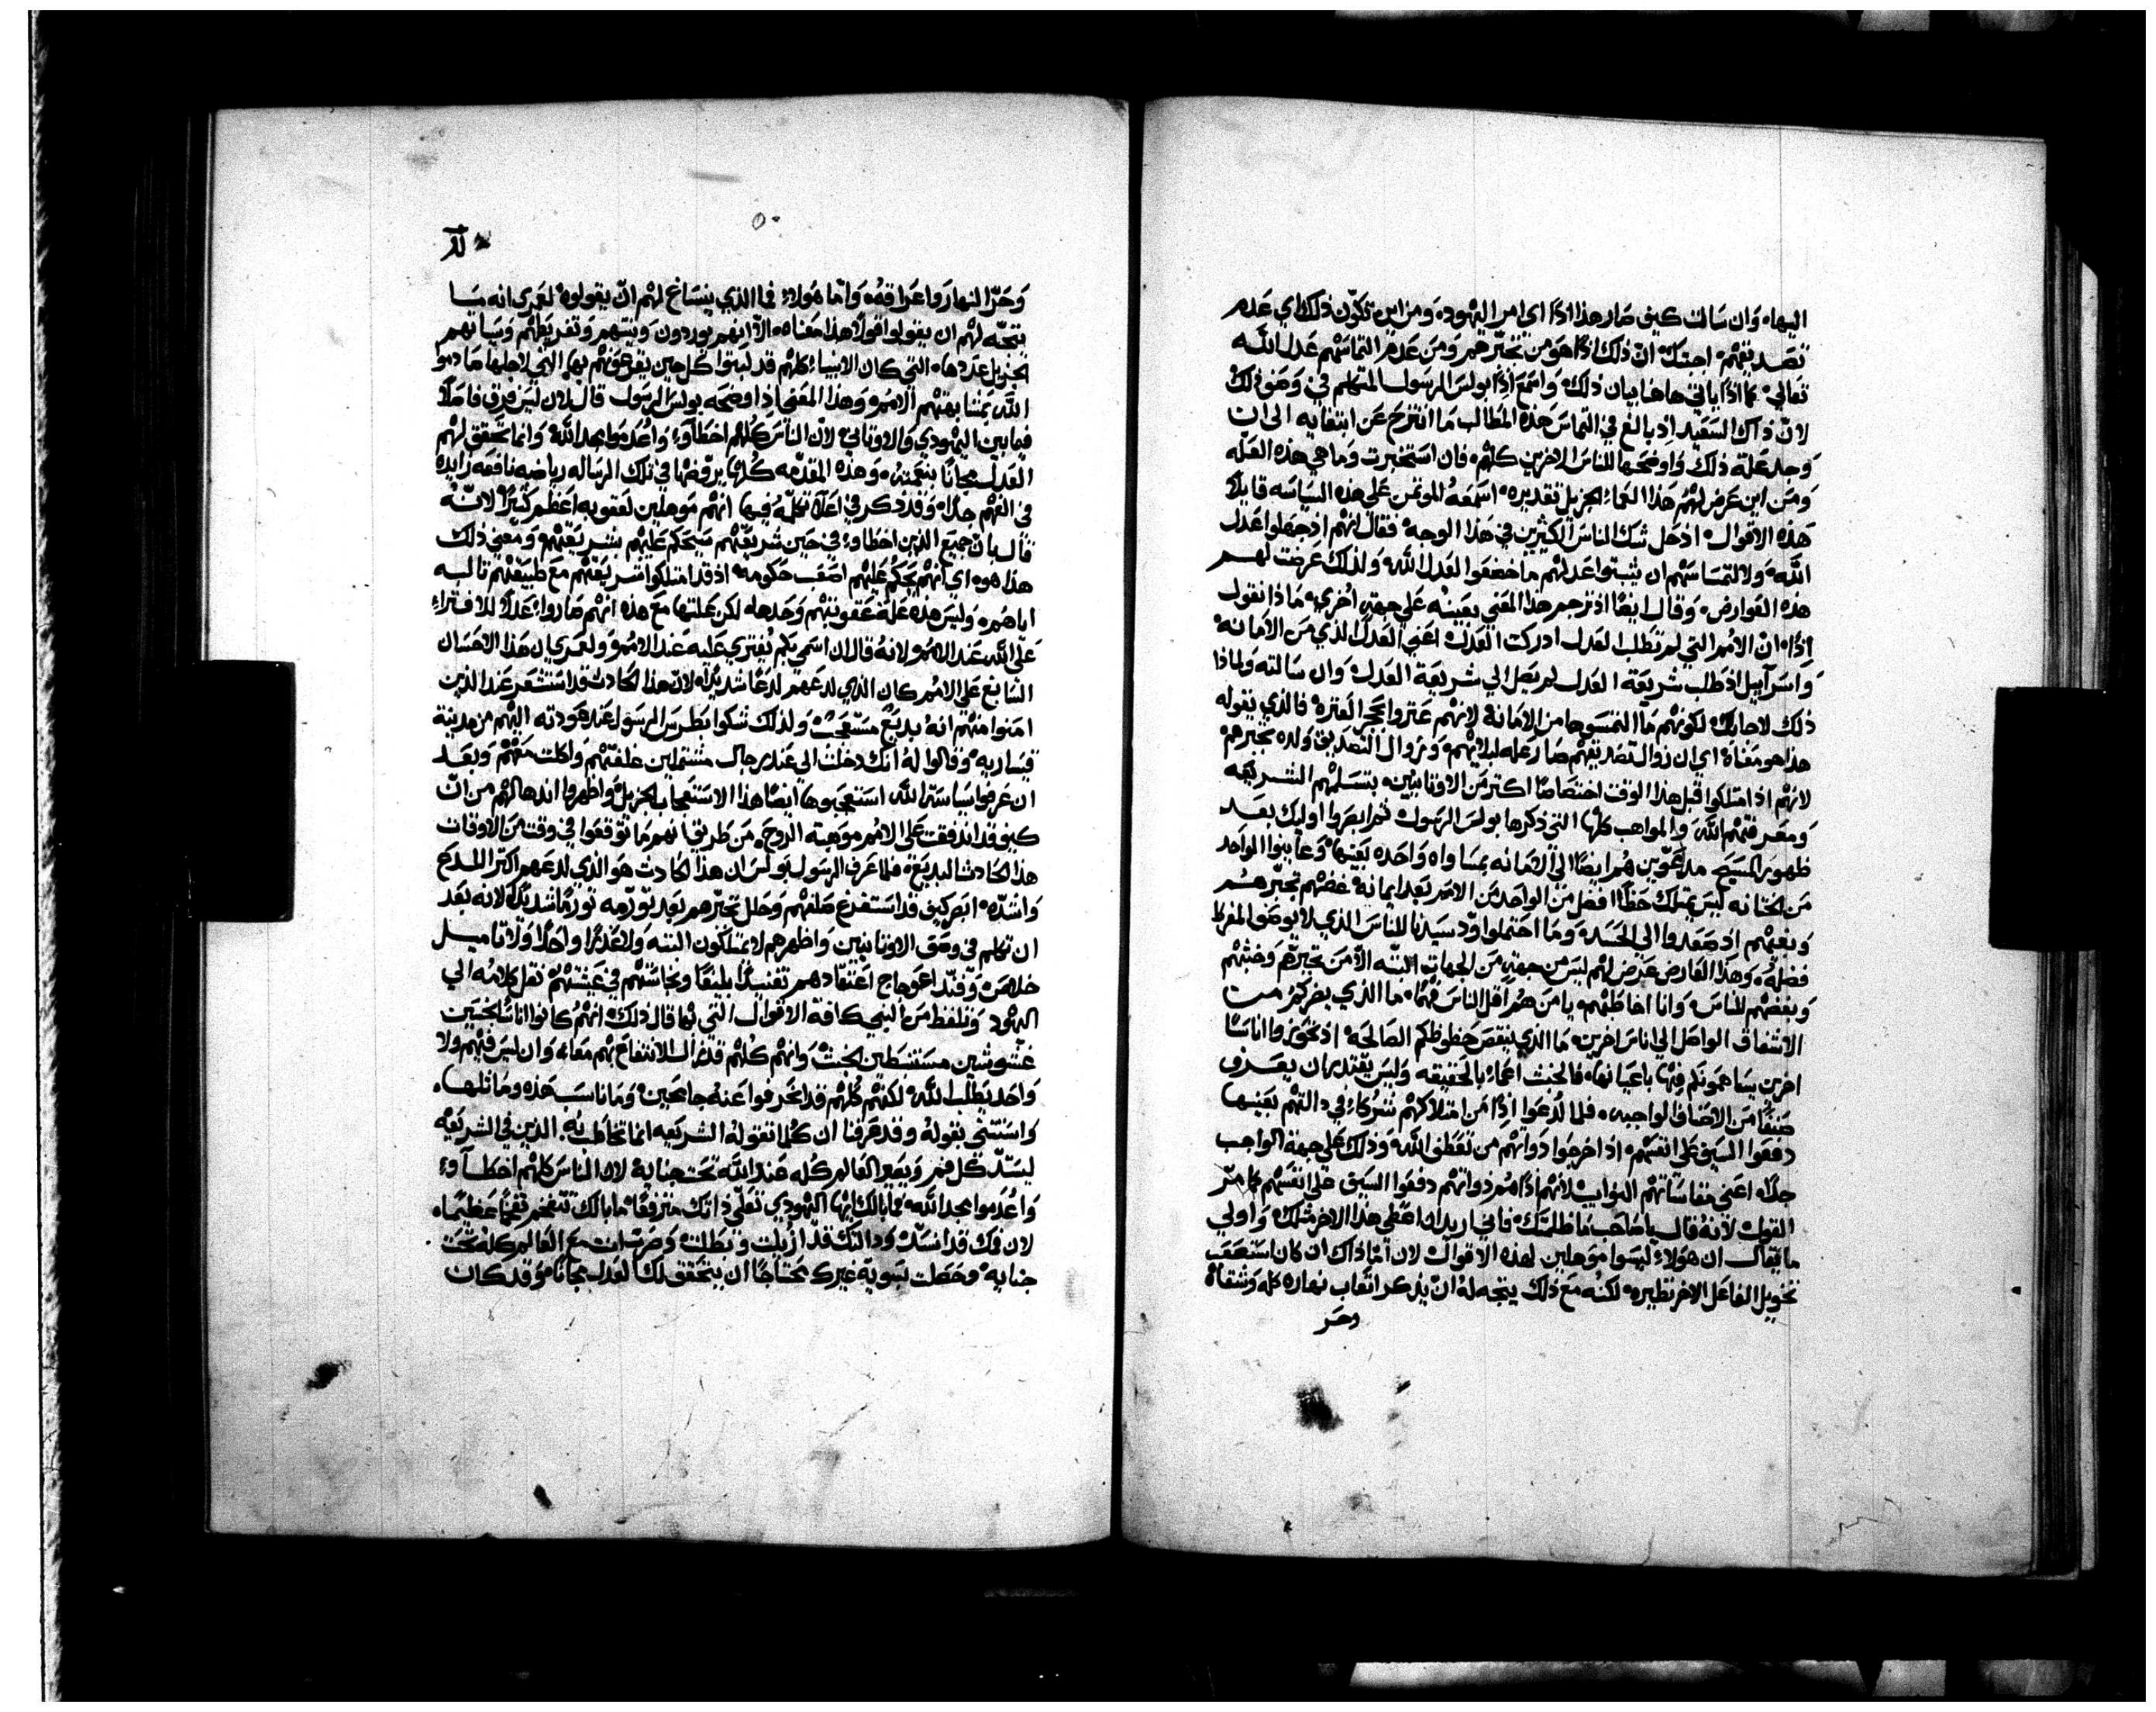 اليها، وَان سَالت كيف صَار هذا اذًا اى امر اليهود، وَمن اين تكوّن ذلك اي عَدم
تصَديقهم، اجبتك، انّ ذلك اذًا هوَ من تجبّرهم وَمن عَدم التماسَهم عَدل اللّه
تعَالي، فما اذًا ياتي هاهنا بيان ذلك، وَاسمَع اذًا بولسَ الرسَول المتكلم في وَصَف ذلك
لانّ ذاك السَعَيد اذ بالغ في التماسَ هَذه المطالب مَا انتزحَ عَن ابتغايه الى ان
وَجد عَلة ذلك وَاوضحَها للناسَ الاخرين كلهم، فان اسَتخبرت وَما هي هذه العَلّه
وَمن اين عَرض لهم هَذا العَماء الجزيل تقديره، اسَمَعهُ الموتمن عَلي هذه السَياسَه قايلًا
هَذه الاقوال، اذ حَل شك الناسَ الكثيرين في هَذا الوجه، فقال انهم اذ جهلوا عَدل
اللّه، وَلالتمسَاسَهم ان يثبتوا عَدلهم ما خضعَوا لعَدل اللّه، وَلذلك عَرضت لهم
هَذه العَوارض، وَقال ايضًا اذ ترجم هَذا المعَني بعَينهُ عَلي جهةٍ اخري، مَا ذا نقول
اذًا، انّ الامم التي لم تطلب العَدل ادركت العَدل، اعَني العَدل الذي من الامانه،
وَاسَرآييل اذ طلب شريعَة العَدل لم يصَل الي شريعَة العَدل، وَان سَالته وَلماذا
ذلك لاجابك، لكونهم مَا التمسَوها من الامانه، لانهم عَثروا بحجر العَثره، فالذي يقوله
هذا هو مَعَناه، اي ان زوال تصَديقهم صَار عَله لبلايهم، وَزوال التصَديق وَلده تجبرهم،
لانهم اذ امتلكوا قبل هذا الوقت اختصَاصَا اكثر من الاوثانيين، بتسَلمهم الشريعَه
وَمعَرفتهم اللّه، وَالمواهب كلها التي ذكرها بولسَ الرسَول، ثم ابصَروا اوليك بعَد
ظهور المسَيح، مدعَوّين هم ايضًا الي الامانه بمسَاواه وَاحَده بعَينها، وَعَاينوا الواحَد
مَن الختانه ليسَ يمتلك حَظًا افضل من الواحَد من الامم بعَد ايمانه، غضبهم تجبّرهم
وَبغيهم اذ صَعَدوا الي الحَسَد، وَمَا احتملوا وَدّ سَيدنا للناسَ الذي لا يوصَف المفرط
فضله، وَهذا العَارض عَرض لهم ليسَ من جهةٍ من الجهات البتّه الّا من تجبّرهم وَخبثهم
وَبغضهم للناسَ، وَانا اخاطبهم، يا من هُم اقل الناسَ فهمًا، ما الذي يضركم من
الاشفاق الواصَل الي اناسَ اخرين، مَا الذي ينقصَ حَظوظكم الصَالحَه، اذ تحَوزوا اناسًا
اخرين يسَاهمونكم فيها باعَيانها، فالخبث اعَماء بالحَقيقه وَليسَ يقتدر ان يعَرف
صَنفًا من الاصَناف الواجبه، فلما لُدعَوا اذًا من امتلاكهم شركاء في دالتهم بعَينها
دفعَوا السَيف عَلي انفسَهم، اذ اخرجوا ذواتهم من تعَطف اللّه، وَذلك عَلي جهة الواجب
جدًا، اعَني مقاسَاتهم النوايب، لانهم اذًا هم ذواتهم دفعَوا السَيف عَلي انفسَهم كما مرّ
القول، لانهُ قال يا صَاحَب ما ظلمتك، فاني اريد ان اعَطي هذا الاخر مثلك، وَاولي
ما يقال، ان هَولاء ليسَوا موَهلين لهذه الاقوال، لان امّا ذاك ان كان اسَتصَعَب
تخَويل الفاعَل الاخر نظيره، لكنهُ مَع ذلك يتجه لهُ انّ يذكر اتعَاب نهاره كله وَشقاهُ
وحَر
٥٠
وَحَرّ النهار وَاعَراقهُ، وَامّا هَولاء فما الذي ينسَاغ لهم انّ يقولوه، لعَمري انه ما
يتجّه لهم ان يقولوا قولًا هذا مَعَناه، الّا انهم يوردون وَنيتهم وَتفريطهم وَسَياتهم
الجزيل عَددها، التي كان الانبياء كلهم قد لبثوا كل حين يقرعَونهم بها، التي لاجلها صَادموا
اللّه بمشابهتهم الامم، وَهذا المعَني اذ اوضحَه بولسَ الرسَول قال لان ليسَ فرق فاصَلًا
فيما بين اليهودي وَالاوثاني، لانّ الناسَ كلهم اخطآوء، وَاعُدموا مجد اللّه، وَانما تحَقق لهم
العَدل مجانًا بنعَمته، وَهذه المقدّمه كُلها يروّضها في تلك الرسَاله رياضه نافعَه زايده
في الفهم جدًا، وَقد ذكر في اعَلا تكلّمه فيها انهم موَهلين لعَقوبه اعَظم كثيرًا، لانّهُ
قال بان جميع الذين اخطاوء في حَين شريعَتهم سَيحَكم عَليهم بشريعَتهم، وَمعَني ذلك
هذا هو، اي انهم يحَكم عَليهم اصَعَب حَكومه، اذ قد امتلكوا شريعَتهم مَع طبيعَتهم ثالبه
اياهم، وَليسَ هذه عَلة عَقوبتهم وَحَدها، لكن عَلتها مَع هذه انهم صَاروا عَلةً للافتراء
عَلي اللّه عَند الامم، لانهُ قال ان اسَمي بكم يُفتري عَليه عَند الامم، وَلعَمري ان هَذا الاحَسَان
السَابغ عَلي الامم كان الذي لدعَهم لدعًا شديدًا، لانّ هذا الحَادث قد اسَتشعَر عَند الذين
امنوا منهم انهُ بديع مسَتعَجب، وَلذلك شكوا بطرسَ الرسَول عَند عَودته اليهم من مدينة
قيسَاريه، وَقالوا لهُ انك دخلت الي عَند رجال مشتملين غلفتهم وَاكلت مَعَهم، وَبعَد
ان عَرفوا سَياسَة اللّه اسَتعَجبوا ايضًا هذا الاسَتعَجاب الجزيل، وَاظهروا اندهالهم من انّ
كيف قد اندفقت عَلى الامم موهبة الروح، مَن طريق انهم ما توقعَوا في وَقت من الاوقات
هذا الحَادث البديع، فلما عَرف الرسَول بولسَ ان هذا الحَادث هو الذي لدعَهم اكثر اللدع
وَاشدّه، ابصَر كيف قد اسَتفرغ صَلفهم وَحَلل تجبّرهم بعَد تورّمه تورمًا شديدًا، لانه بعَد
ان تكلم في وَصَف الاوثانيين وَاظهرهم لا يمتلكون البته وَلا عَذرًا وَاحدًا وَلا تاميل
خلاصَ، وَفنّد اعَوجاج اعَتقادهم تفنيدًا بليغًا وَنجاسَتهم في عَيشتهم، نقل كلامه الي
اليهود وَتلفظ من النبي كافة الاقوال التي بها قال ذلك، انهم كانوا اناسًا خبثين
غشوشين مسَتنبطين الخبث، وَانهم كلهم قد زال الانتفاع بهم مَعًا، وَان ليسَ فيهم وَلا
وَاحَد يطلب اللّه، لكنهم كلهم قد انحَرفوا عَنهُ جامحَين، وَمَا ناسَب هَذه وَماثلها،
وَاسَتثنى بقوله، وَقد عَرفنا ان كُلما تقوله الشريعَه انما تخاطب به الذين في الشريعَه
ليسَدّ كل فم، وَيصَير العَالم كُله عَند اللّه تحَت جنايه، لان الناسَ كلهم اخطآوء
وَاعُدموا مجد اللّه، فما بالك ايها اليهودي تعَلّي ذاتك مترفعًا، ما بالك تتفخم تفخمًا عَظيمًا،
لان فمك قد انسَدّ، وَدالتك قد ازُيلت وَبطلت، وَصَرت انت مع العَالم كله تحَت
جنايه، وحَصَلت بسَويّه غيرك محَتاجًا ان يتحَقق لك العَدل مجانًا، وَقد كان